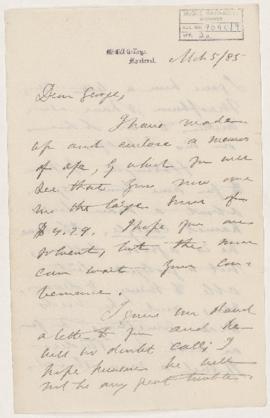 McGill College,
Montreal,
Mch 5/85
Dear George,
I have made
up and enclose a memo
of a/c, by which you will
see that you now owe
me the large sum of
$4.29. I hope you are
solvent, but this
can wait your con-
venience.
I gave
a letter to you and he
will no doubt call; I
hope however he will
not be any great trouble